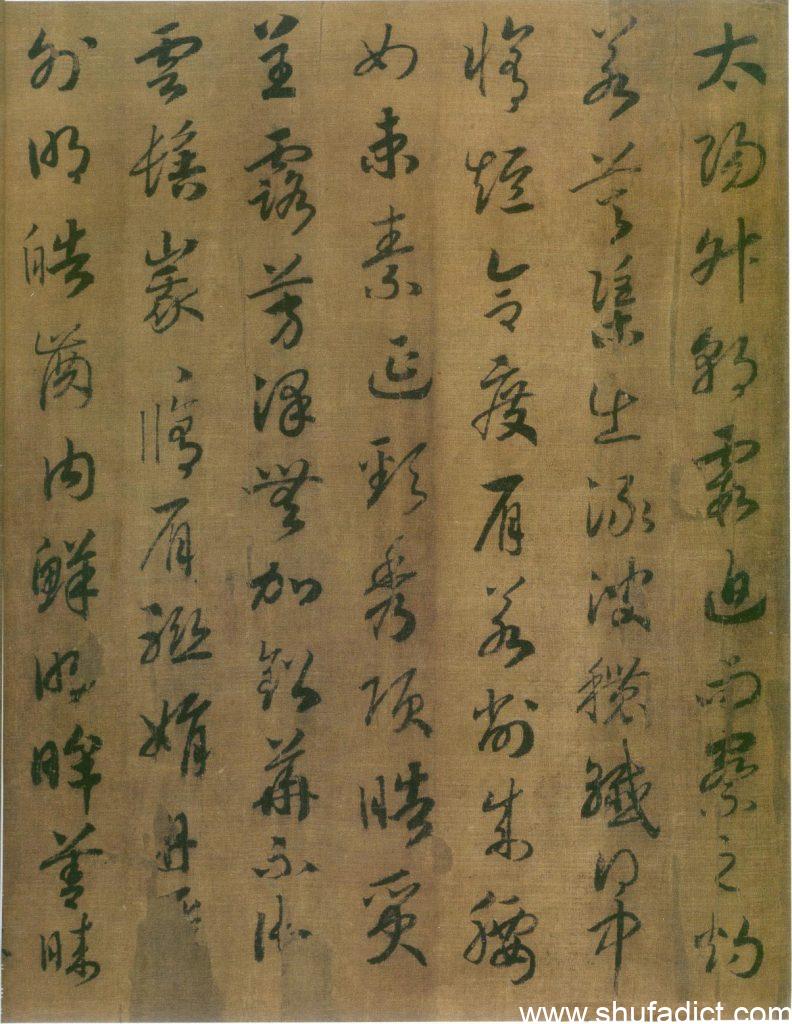 太陽升朝霞迫而察之灼
若芙蕖出淥波穠纖得中
脩短合度肩若削成腰
如束素延頸秀項皓質
呈露芳澤無加鉛華不御
雲髻峩〻脩眉聯娟丹脣
外朗皓齒內鮮明眸善睞
www.shufadict.com